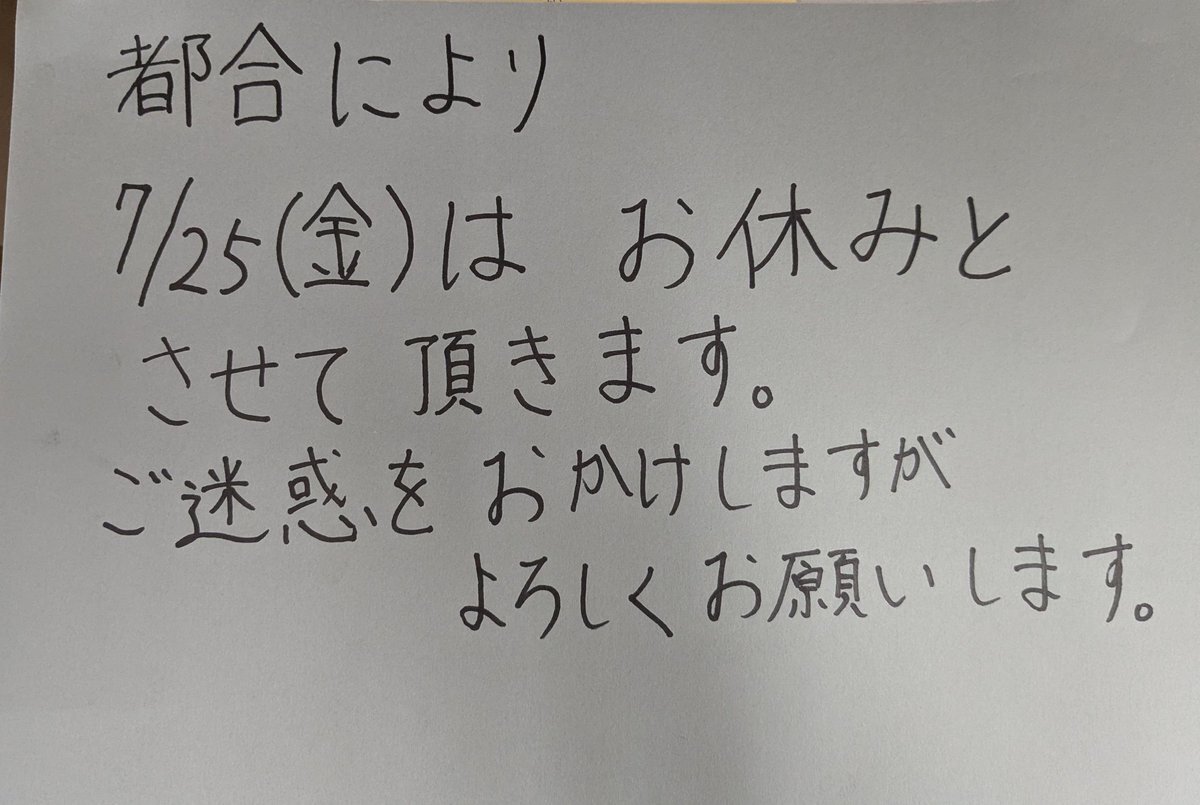 都合により
7/25(金)は お休みと
させて頂きます。
ご迷惑を おかけしますが
よろしくお願いします。